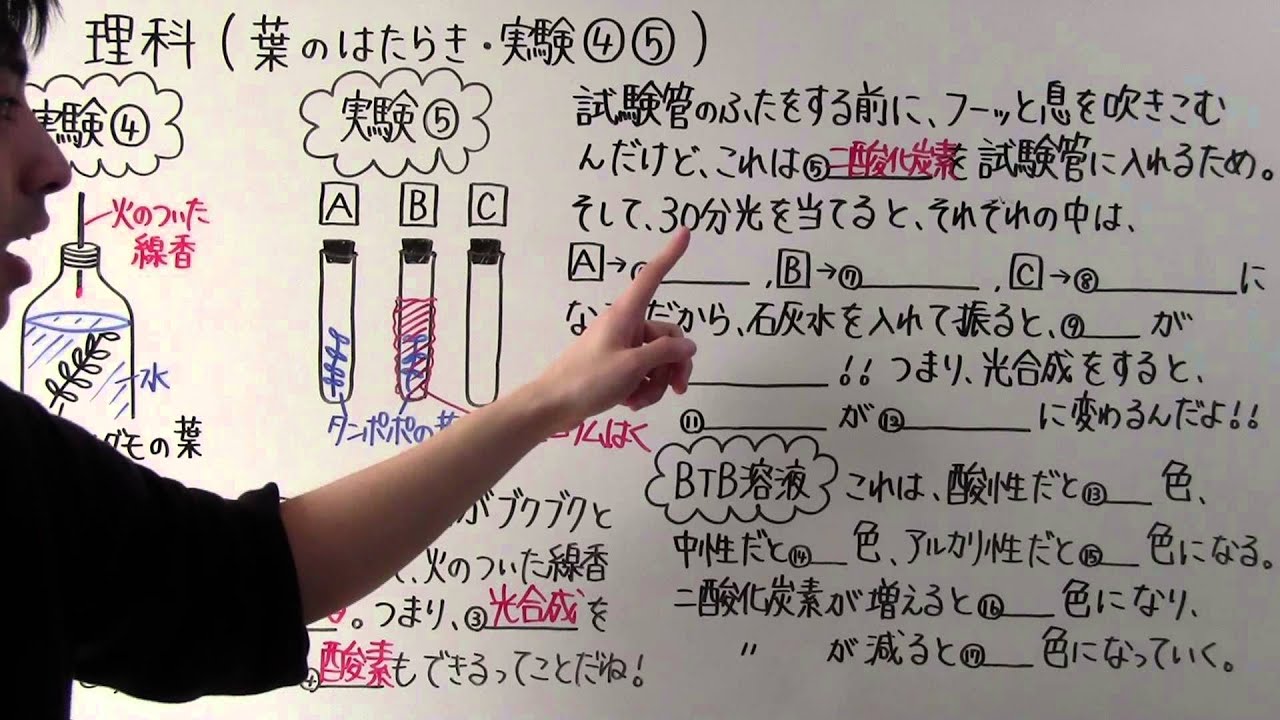 理科(葉のはたらき・実験④⑤)
実験④
火のついた
線香
水
モの葉
実験⑤
A B C
タンポポの葉
ムはく
がブクブクと
、火のついた線香
。つまり、③光合成を
④酸素もできるってことだね!
試験管のふたをする前に、フーッと息を吹きこむ
んだけど、これは⑤二酸化炭素を試験管に入れるため。
そして、30分光を当てると、それぞれの中は、
A→ ,B→⑦ ,C→⑧ に
な だから、石灰水を入れて振ると、⑨ が
!!つまり、光合成をすると、
⑪ が⑫ に変わるんだよ!!
BTB溶液 これは、酸性だと⑬ 色、
中性だと⑭ 色、アルカリ性だと⑮ 色になる。
二酸化炭素が増えると⑯ 色になり、
〃 が減ると⑰ 色になっていく。